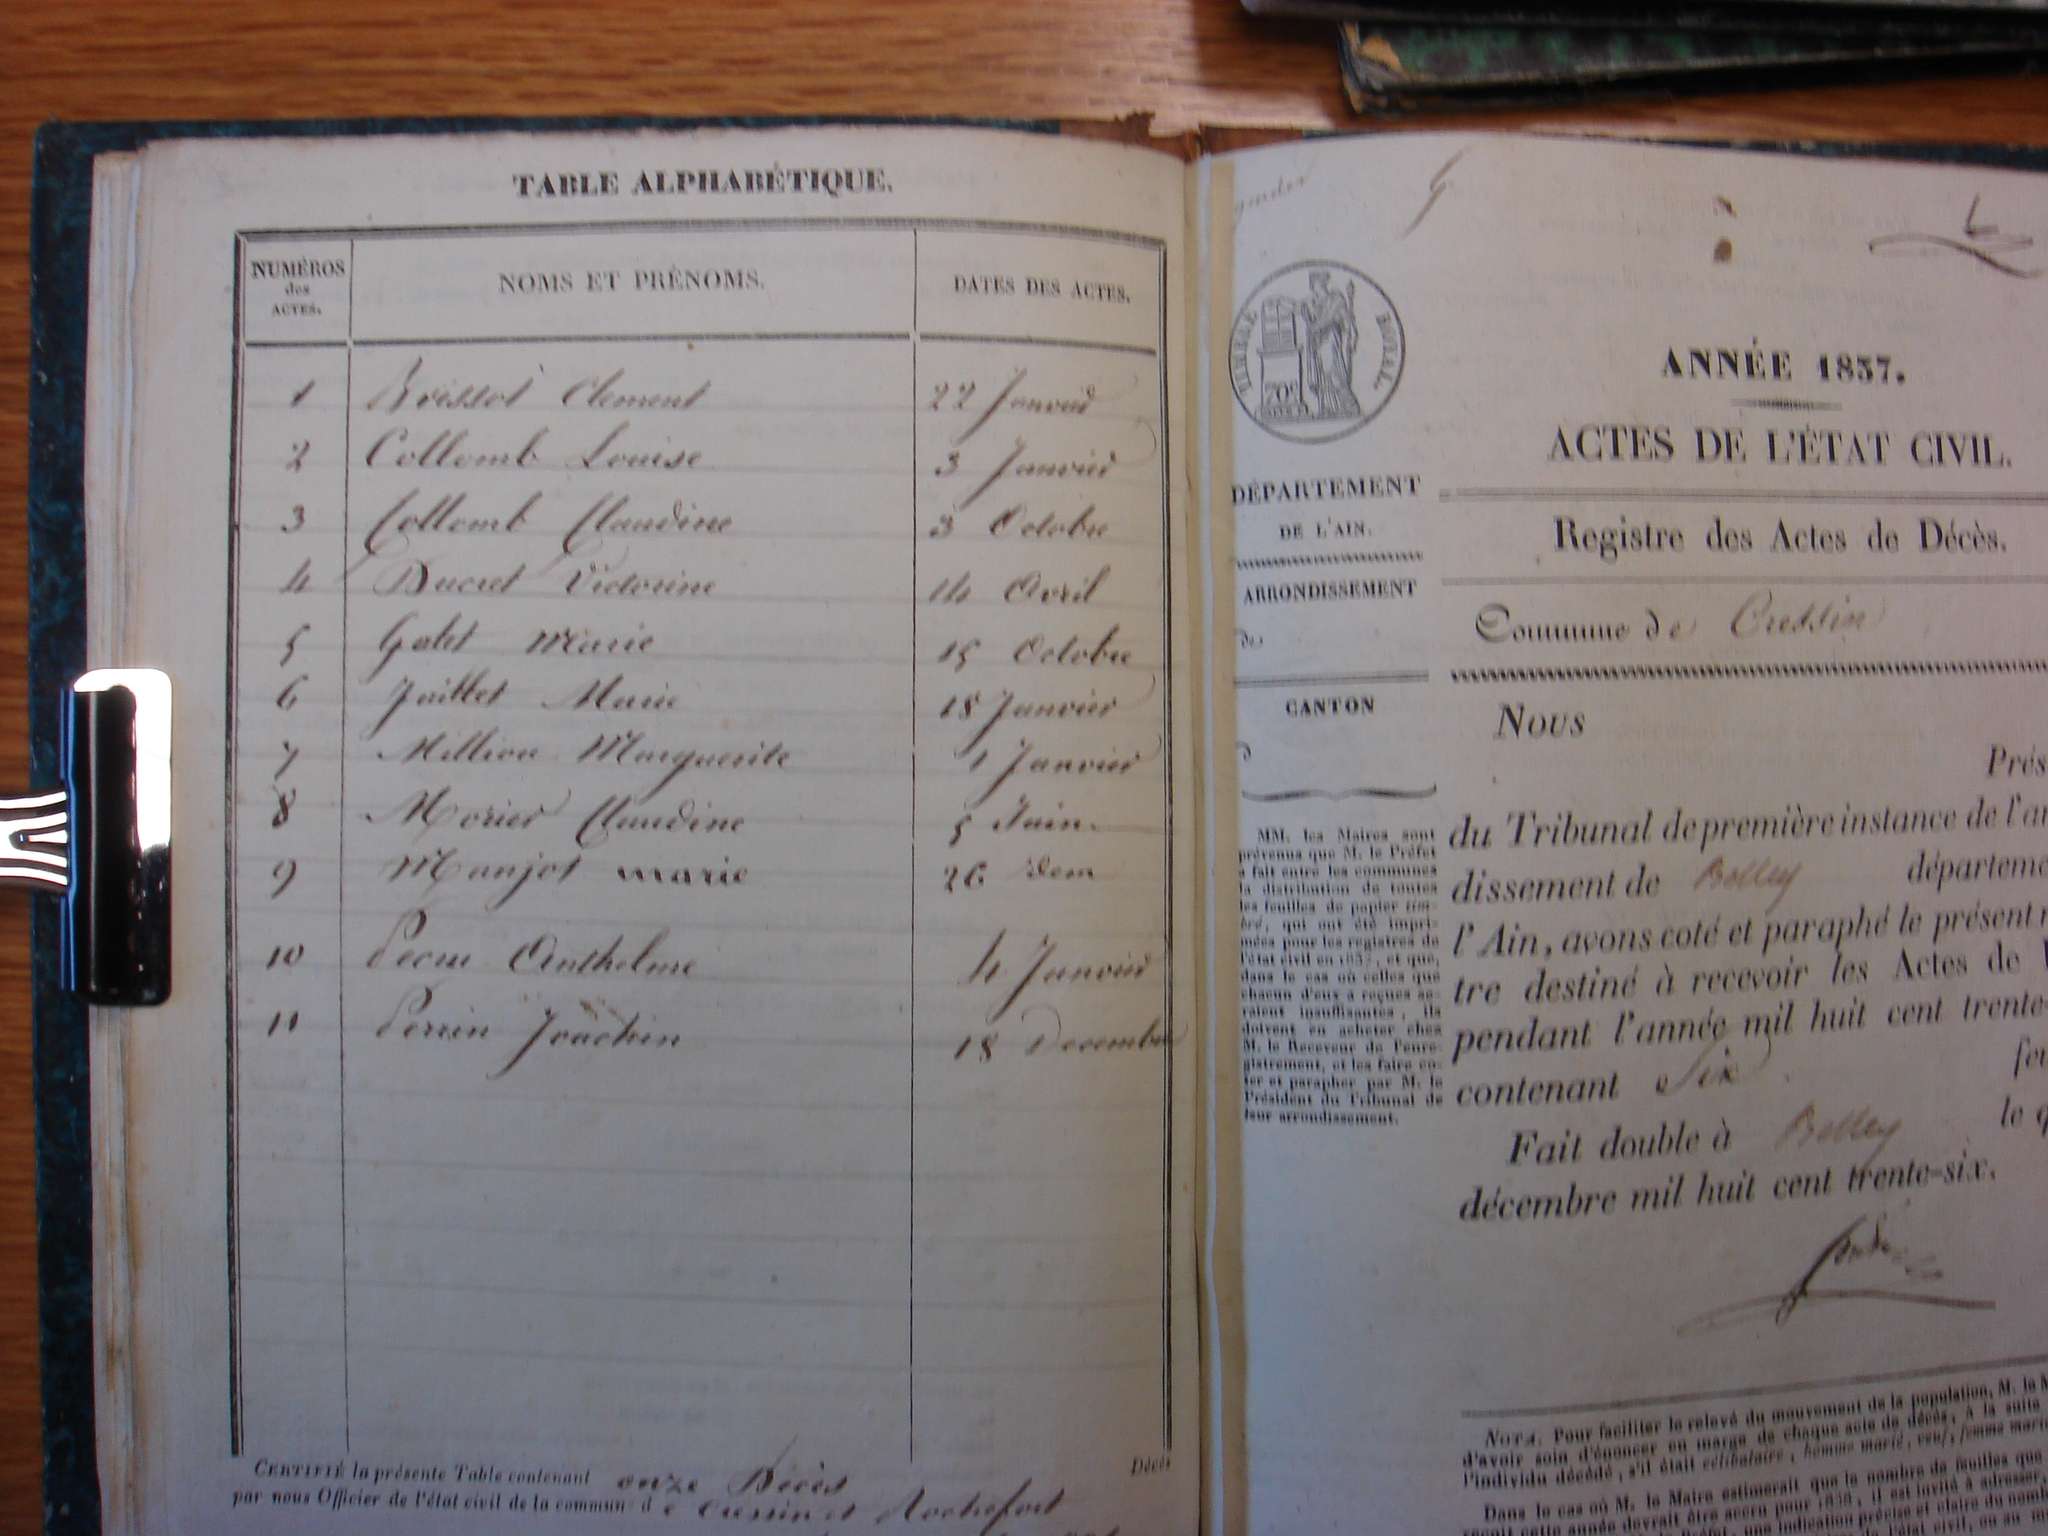 TABLE ALPHABÉTIQUE.
NUMÉROS
des
ACTES.
NOMS ET PRÉNOMS.
DATES DES ACTES.
1 Boissot Clement 22 Janvier
2 Collomb Louise 3 Janvier
3 Collomb Claudine 3 Octobre
4 Ducret Victorine 14 Avril
5 Marie 15 Octobre
6 Juillet Marie 18 Janvier
7 Million Marguerite 1 Janvier
8 Morier Claudine 5 Juin
9 Manjot marie 26 idem
10 Anthelme 4 Janvier
11 Perrin Joachin 18 Decembre
CERTIFIÉ la présente Table contenant onze Décès Décès
par nous Officier de l'état civil de la commune de Cressin et Rochefort
TIMBRE ROYAL.
70c
DÉPARTEMENT
DE L'AIN.
ARRONDISSEMENT
de
CANTON
d
MM. les Maires sont
prévenus que M. le Préfet
a fait entre les communes
la distribution de toutes
les feuilles de papier tim-
bré, qui ont été impri-
mées pour les registres de
l'état civil en 1837, et que,
dans le cas où celles que
chacun d'eux a reçues se-
raient insuffisantes, ils
doivent en acheter chez
M. le Receveur de l'enre-
gistrement, et les faire co-
ter et parapher par M. le
Président du Tribunal de
leur arrondissement.
ANNÉE 1837.
ACTES DE L'ÉTAT CIVIL.
Registre des Actes de Décès.
Commune de Cressin
Nous
Prés
du Tribunal de première instance de l'ar
dissement de Belley départeme
l'Ain, avons coté et paraphé le présent r
tre destiné à recevoir les Actes de
pendant l'année mil huit cent trente-
contenant Six feu
Fait double à Belley le q
décembre mil huit cent trente-six.
NOTA. Pour faciliter le relevé du mouvement de la population, M. le M
d'avoir soin d'énoncer en marge de chaque acte de décès, à la suite
l'individu décédé, s'il était célibataire, homme marié, veuf, femme marié
Dans le cas où M. le Maire estimerait que le nombre de feuilles que
reçoit cette année devrait être accru pour 1838, il est invité à adresser,
une indication précise et claire du nom